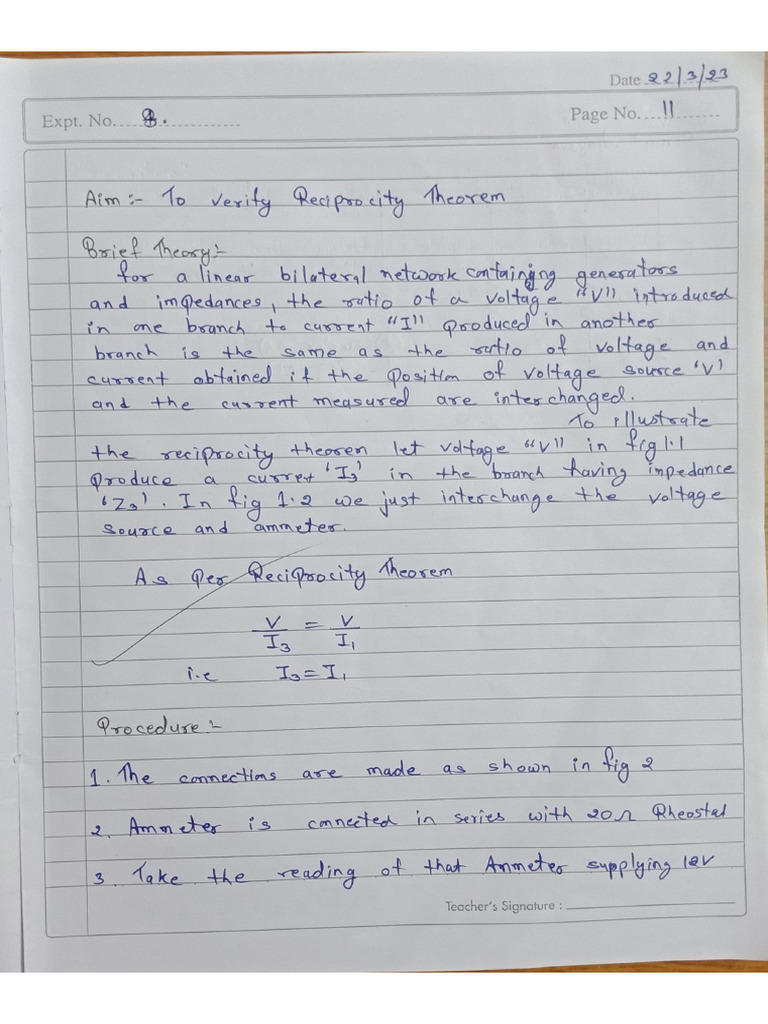 Date 22/3/23
Expt. No. 8.
Page No. 11
Aim :- To verify Reciprocity Theorem
Brief Theory:-
for a linear bilateral network containing generators
and impedances, the ratio of a voltage "V" introduced
in one branch to current "I" produced in another
branch is the same as the ratio of voltage and
current obtained if the position of voltage source 'V'
and the current measured are interchanged.
To illustrate
the reciprocity theoren let voltage "V" in fig 1.1
produce a curret 'I3' in the branch having impedance
'Z3'. In fig 1.2 we just interchange the voltage
source and ammeter.
As Per Reciprocity Theorem
V/I3 = V/I1
i.e I3 = I1
Procedure :-
1. The connections are made as shown in fig 2
2. Ammeter is connected in series with 20Ω Rheostat
3. Take the reading of that Ammeter supplying 12V
Teacher's Signature :